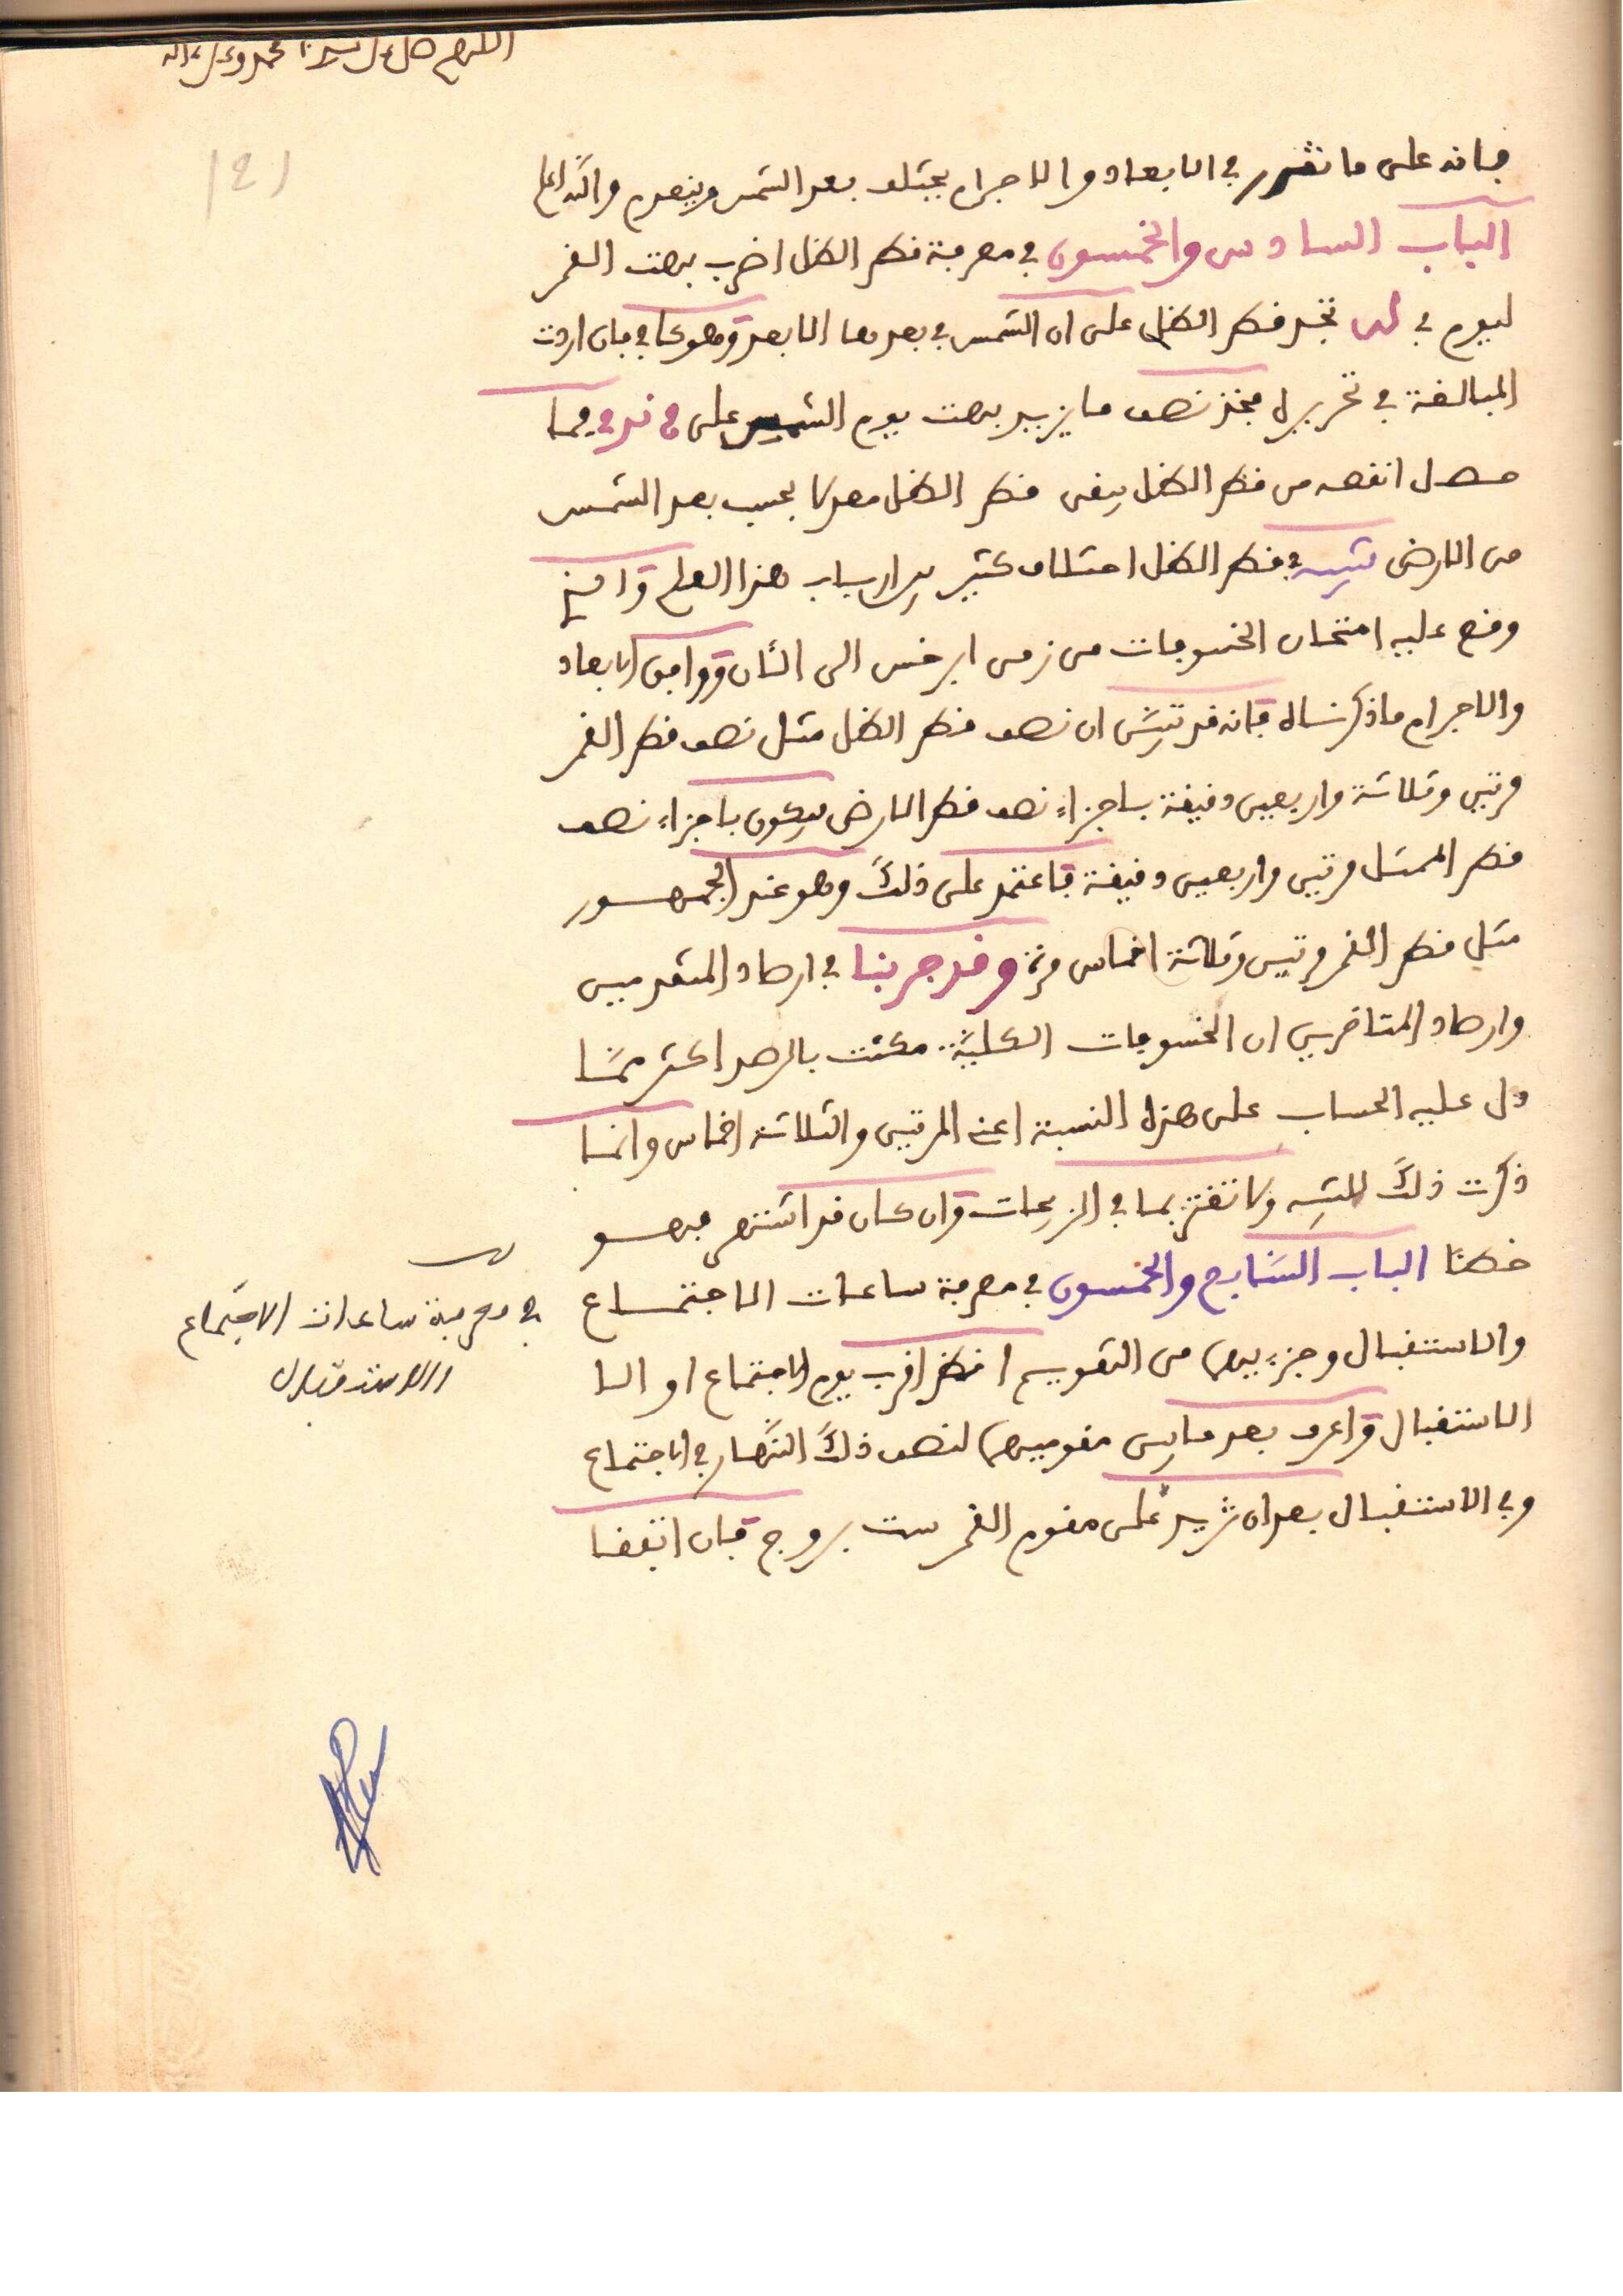 اللهم صل على سيدنا محمد وعلى ءاله
121
فانه على ما تقرر في الابعاد والاجرام يختلف بعد الشمس وينعدم والله اعلم
الباب السادس والخمسون في معرفة قطر الظل اضرب بهت القمر
ليوم في تجد قطر الظل على ان الشمس في بعدها الابعد وهو كاف فان اردت
المبالغة في تحريره فخذ نصف ما يزيد بهت يوم الشمس على فما
حصل انقصه من قطر الظل يبقى قطر الظل معدلا بحسب بعد الشمس
من الارض تنبيه في قطر الظل اختلاف كثير بين ارباب هذا العلم والذي
وقع عليه امتحان الخسوفات من زمن ابرخس الى الئان ووافق الابعاد
والاجرام ما ذكرناه فانه قد تبين ان نصف قطر الظل مثل نصف قطر القمر
مرتين وثلاثة واربعين دقيقة باجزاء نصف قطر الارض فيكون باجزاء نصف
قطر الممثل مرتين واربعين دقيقة فاعتمد على ذلك وهو عند الجمهور
مثل قطر القمر مرتين وثلاثة اخماس مرة وقد جربنا في ارصاد المتقدمين
وارصاد المتاخرين ان الخسوفات الكلية مكثت بالرصد اكثر مما
دل عليه الحساب على هذه النسبة اعني المرتين والثلاثة اخماس وانما
ذكرت ذلك للتنبيه ولا تغتر بما في الزيجات وان كان قد اشتهر فهو
خطئا الباب السابع والخمسون في معرفة ساعات الاجتماع
في معرفة ساعات الاجتماع
والاستقبال
والاستقبال وجزءيهما من التقويم انظر اقرب يوم الاجتماع او الا
الاستقبال واعرف بعد ما بين مقوميهما لنصف ذلك النهار في الاجتماع
وفي الاستقبال بعد ان تزيد على مقوم القمر ست بروج فان اتفقا